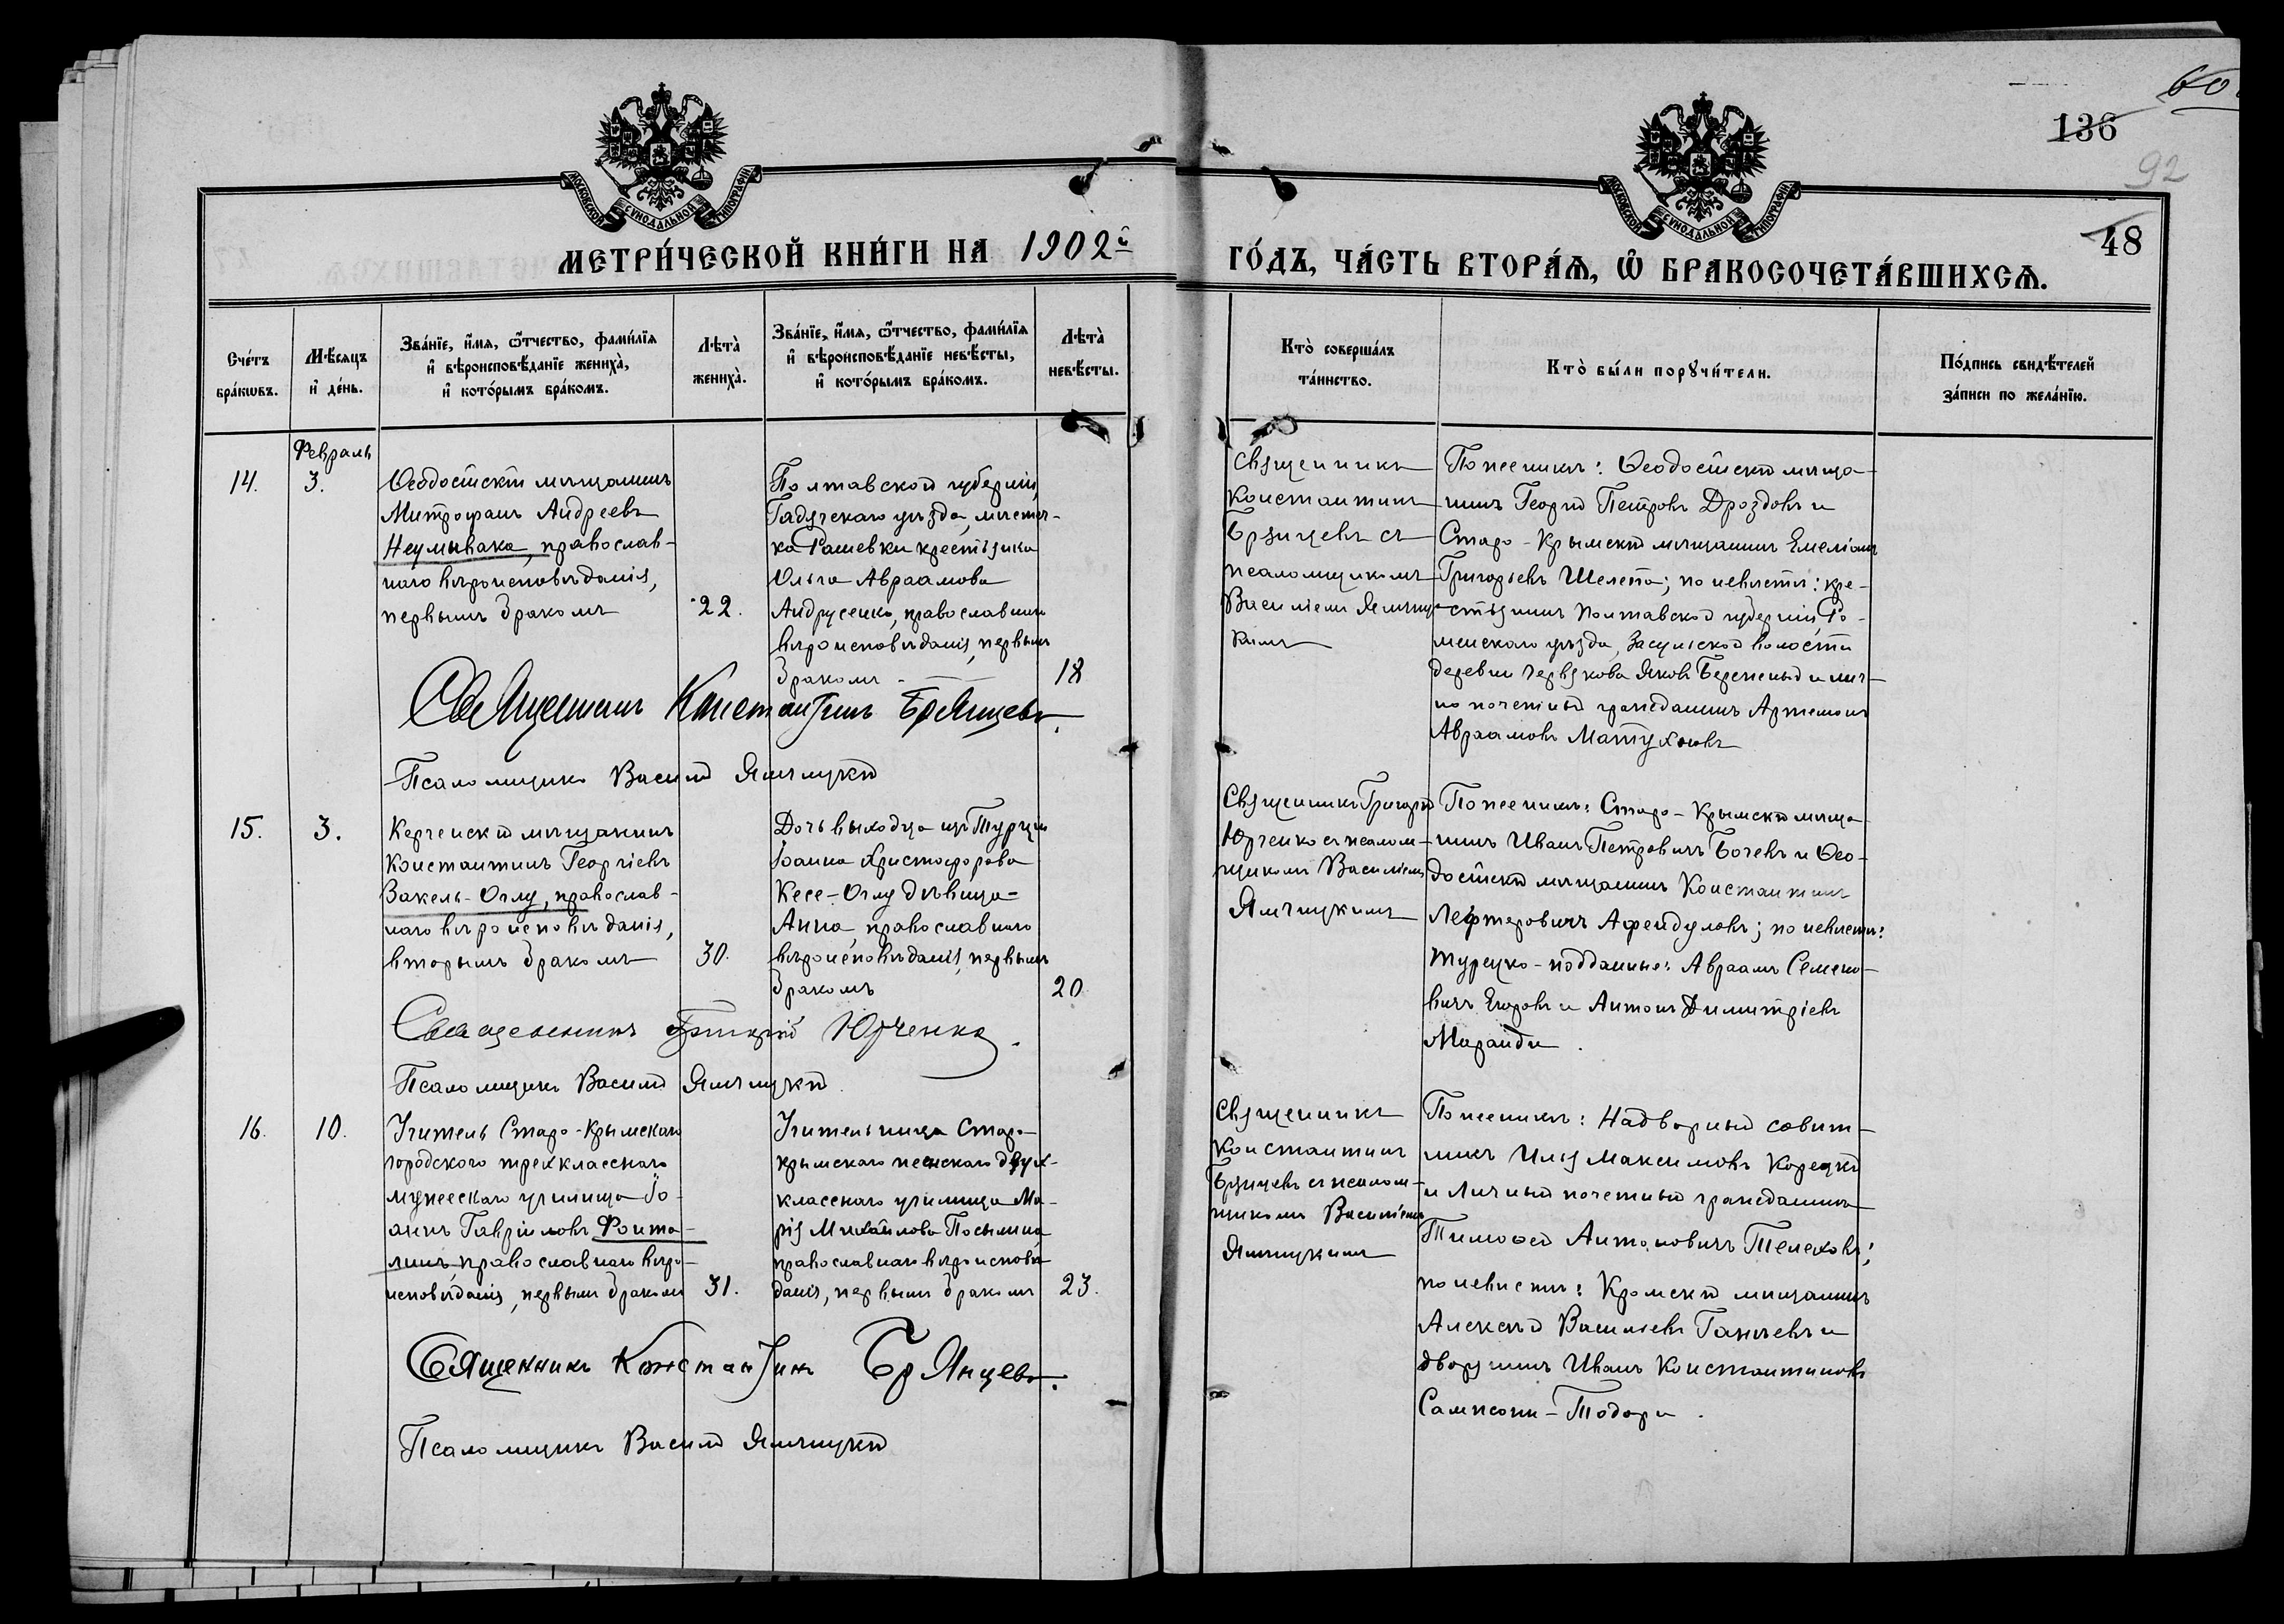 60
136
92
48
МОСКОВСКОЙ СУНОДАЛЬНОЙ ТИПОГРАФІИ
МОСКОВСКОЙ СУНОДАЛЬНОЙ ТИПОГРАФІИ
МЕТРИ́ЧЕСКОЙ КНИ́ГИ НА 1902й
ГО́ДЪ, ЧА́СТЬ ВТОРА́Ѧ, Ѽ БРАКОСОЧЕТА́ВШИХСѦ.
Сче́тъ бра́кѡвъ.
Мѣ́сяцъ и҆ де́нь.
Зва́нїе, и҆́мя, ѻ҆́тчество, фами́лїя
и҆ вѣроисповѣ́данїе жениха̀,
и҆ кото́рымъ бра́комъ.
Лѣта̀ жениха̀.
Зва́нїе, и҆́мя, ѻ҆́тчество, фами́лїя
и҆ вѣроисповѣ́данїе невѣ́сты,
и҆ кото́рымъ бра́комъ.
Лѣта̀ невѣ́сты.
Кто̀ соверша́лъ та́инство.
Кто̀ бы́ли порꙋчи́тели.
По́дпись свидѣ́телей за́писи по жела́нїю.
Февраль
14.
3.
Ѳеодосійскій мѣщанинъ
Митрофанъ Андреевъ
Неумывака, православ-
наго вѣроисповѣданія,
первымъ бракомъ
22.
Полтавской губерніи,
Гадячскаго уѣзда, мѣстеч-
ка Рашевки крестьянка
Ольга Авраамова
Андрусенко, православнаго
вѣроисповѣданія, первымъ
бракомъ
18
Священникъ
Константинъ
Брянцевъ съ
псаломщикомъ
Василіемъ Ямчиц-
кимъ
По женихѣ: Ѳеодосійскій мѣща-
нинъ Георгій Петровъ Дроздовъ и
Старо-Крымскій мѣщанинъ Емеліанъ
Григорьевъ Шелепа; по невѣстѣ: кре-
стьянинъ Полтавской губерніи, Ро-
менскаго уѣзда, Засульской волости
деревни Червякова Яковъ Бережный и лич-
но почетный гражданинъ Артемонъ
Авраамовъ Матухновъ
Священникъ Константинъ Брянцевъ.
Псаломщикъ Василій Ямчицкій
15.
3.
Керченскій мѣщанинъ
Константинъ Георгіевъ
Вакель-Оглу, православ-
наго вѣроисповѣданія,
вторымъ бракомъ
30.
Дочь выходца изъ Турціи
Іоанна Христофорова
Кесе-Оглу дѣвица
Анна, православнаго
вѣроисповѣданія, первымъ
бракомъ
20
Священникъ Григорій
Юрченко съ псалом-
щикомъ Василіемъ
Ямчицкимъ
По женихѣ: Старо-Крымскій мѣща-
нинъ Иванъ Петровичъ Бочевъ и Ѳео-
досійскій мѣщанинъ Константинъ
Лефтеровичъ Афендуловъ; по невѣстѣ:
турецко-подданные: Авраамъ Семено-
вичъ Егоровъ и Антонъ Димитріевъ
Миранди.
Священникъ Григорій Юрченко.
Псаломщикъ Василій Ямчицкій
16.
10.
Учитель Старо-Крымскаго
городскаго трехкласснаго
мужескаго училища Іо-
аннъ Гавріиловъ Фонта-
линъ, православнаго вѣро-
исповѣданія, первымъ бракомъ
31.
Учительница Старо-
крымскаго женскаго двух-
класснаго училища Ма-
рія Михайлова Посылина
православнаго вѣроисповѣ-
данія, первымъ бракомъ
23.
Священникъ
Константинъ
Брянцевъ съ псалом-
щикомъ Василіемъ
Ямчицкимъ
По женихѣ: Надворный совѣт-
никъ Илья Максимовъ Корецкій
и личный почетный гражданинъ
Тимоѳей Антоновичъ Телеховъ;
по невѣстѣ: Кромскій мѣщанинъ
Алексѣй Васильевъ Ганчевъ и
дворянинъ Иванъ Константиновъ
Сампсони-Тодори.
Священникъ Константинъ Брянцевъ.
Псаломщикъ Василій Ямчицкій